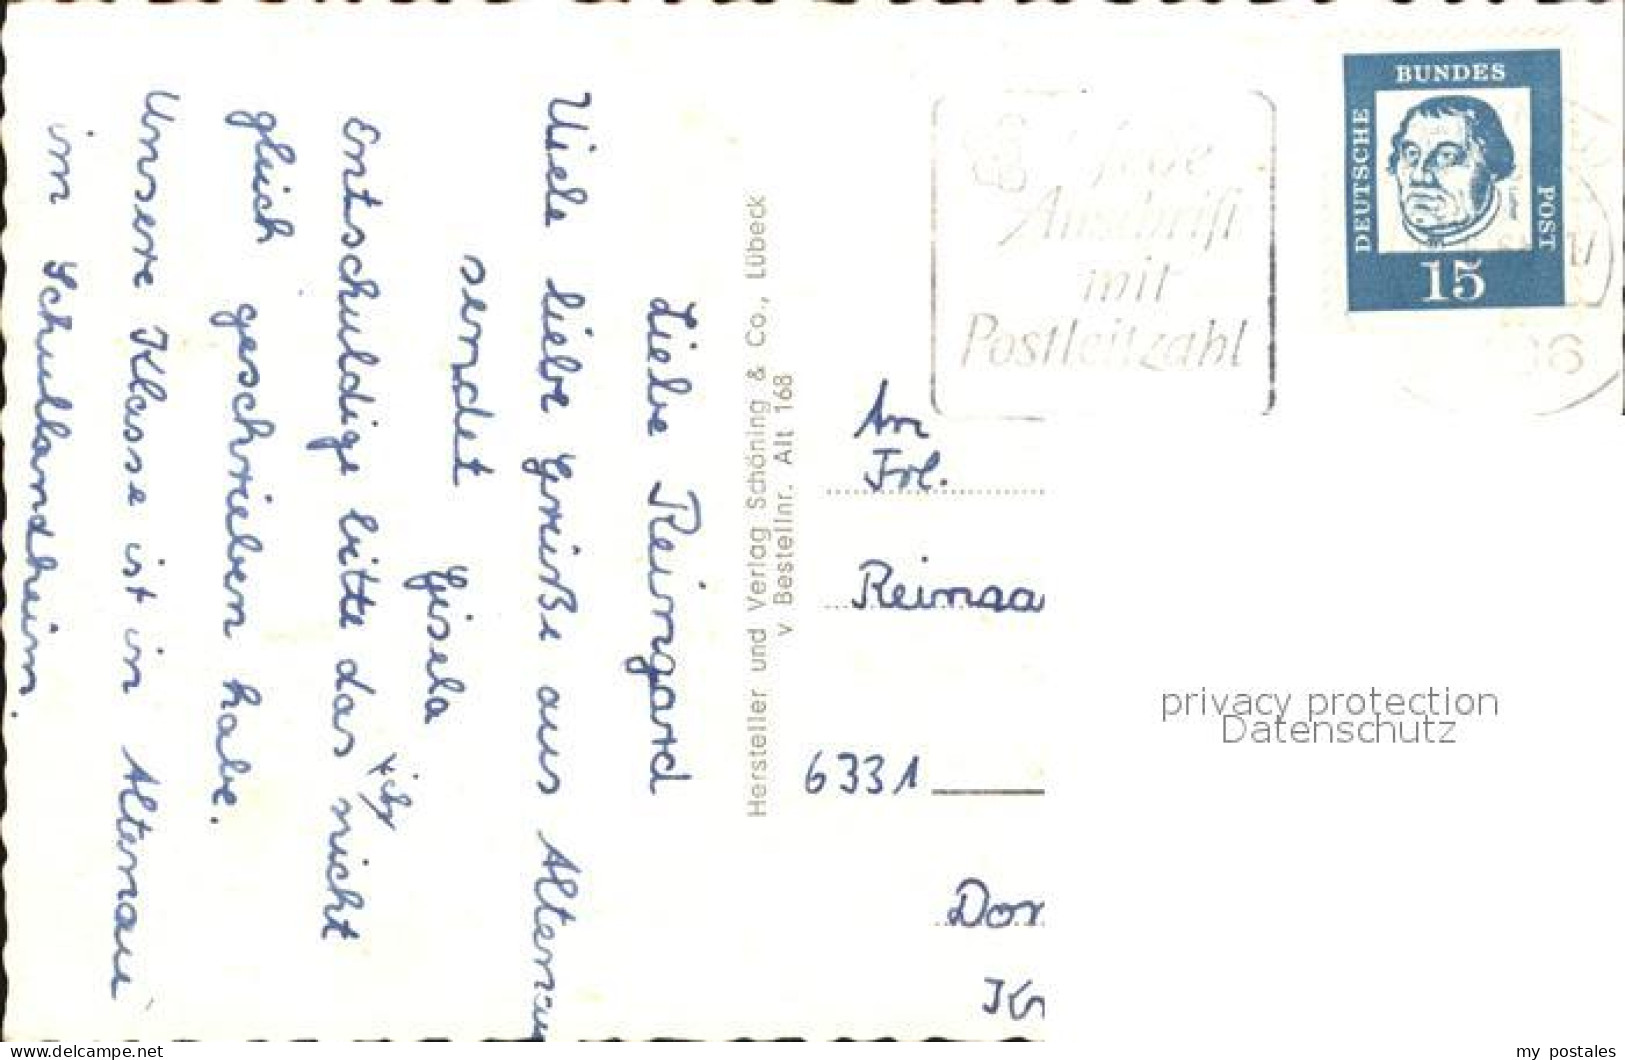 Liebe Reingard
Viele liebe Grüße aus Altenau
sendet
Gisela
Entschuldige bitte das * ich nicht
gleich geschrieben habe.
Unsere Klasse ist in Altenau
im Schullandheim.
Hersteller und Verlag Schöning & Co., Lübeck
v Bestellnr. Alt 168
Anschrift
mit
Postleitzahl
DEUTSCHE
BUNDES
POST
15
An
Frl.
6331
Dor
Kr
privacy protection
Datenschutz
www.delcampe.net
my_postales